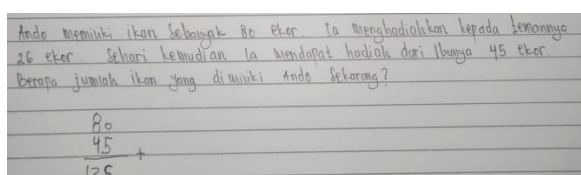 Ando memiliki ikan sebanyak 80 ekor. Ia menghadiahkan kepada temannya
26 ekor. Sehari kemudian Ia mendapat hadiah dari Ibunya 45 ekor.
Berapa jumlah ikan yang dimiliki Ando sekarang?
80
45 +
125